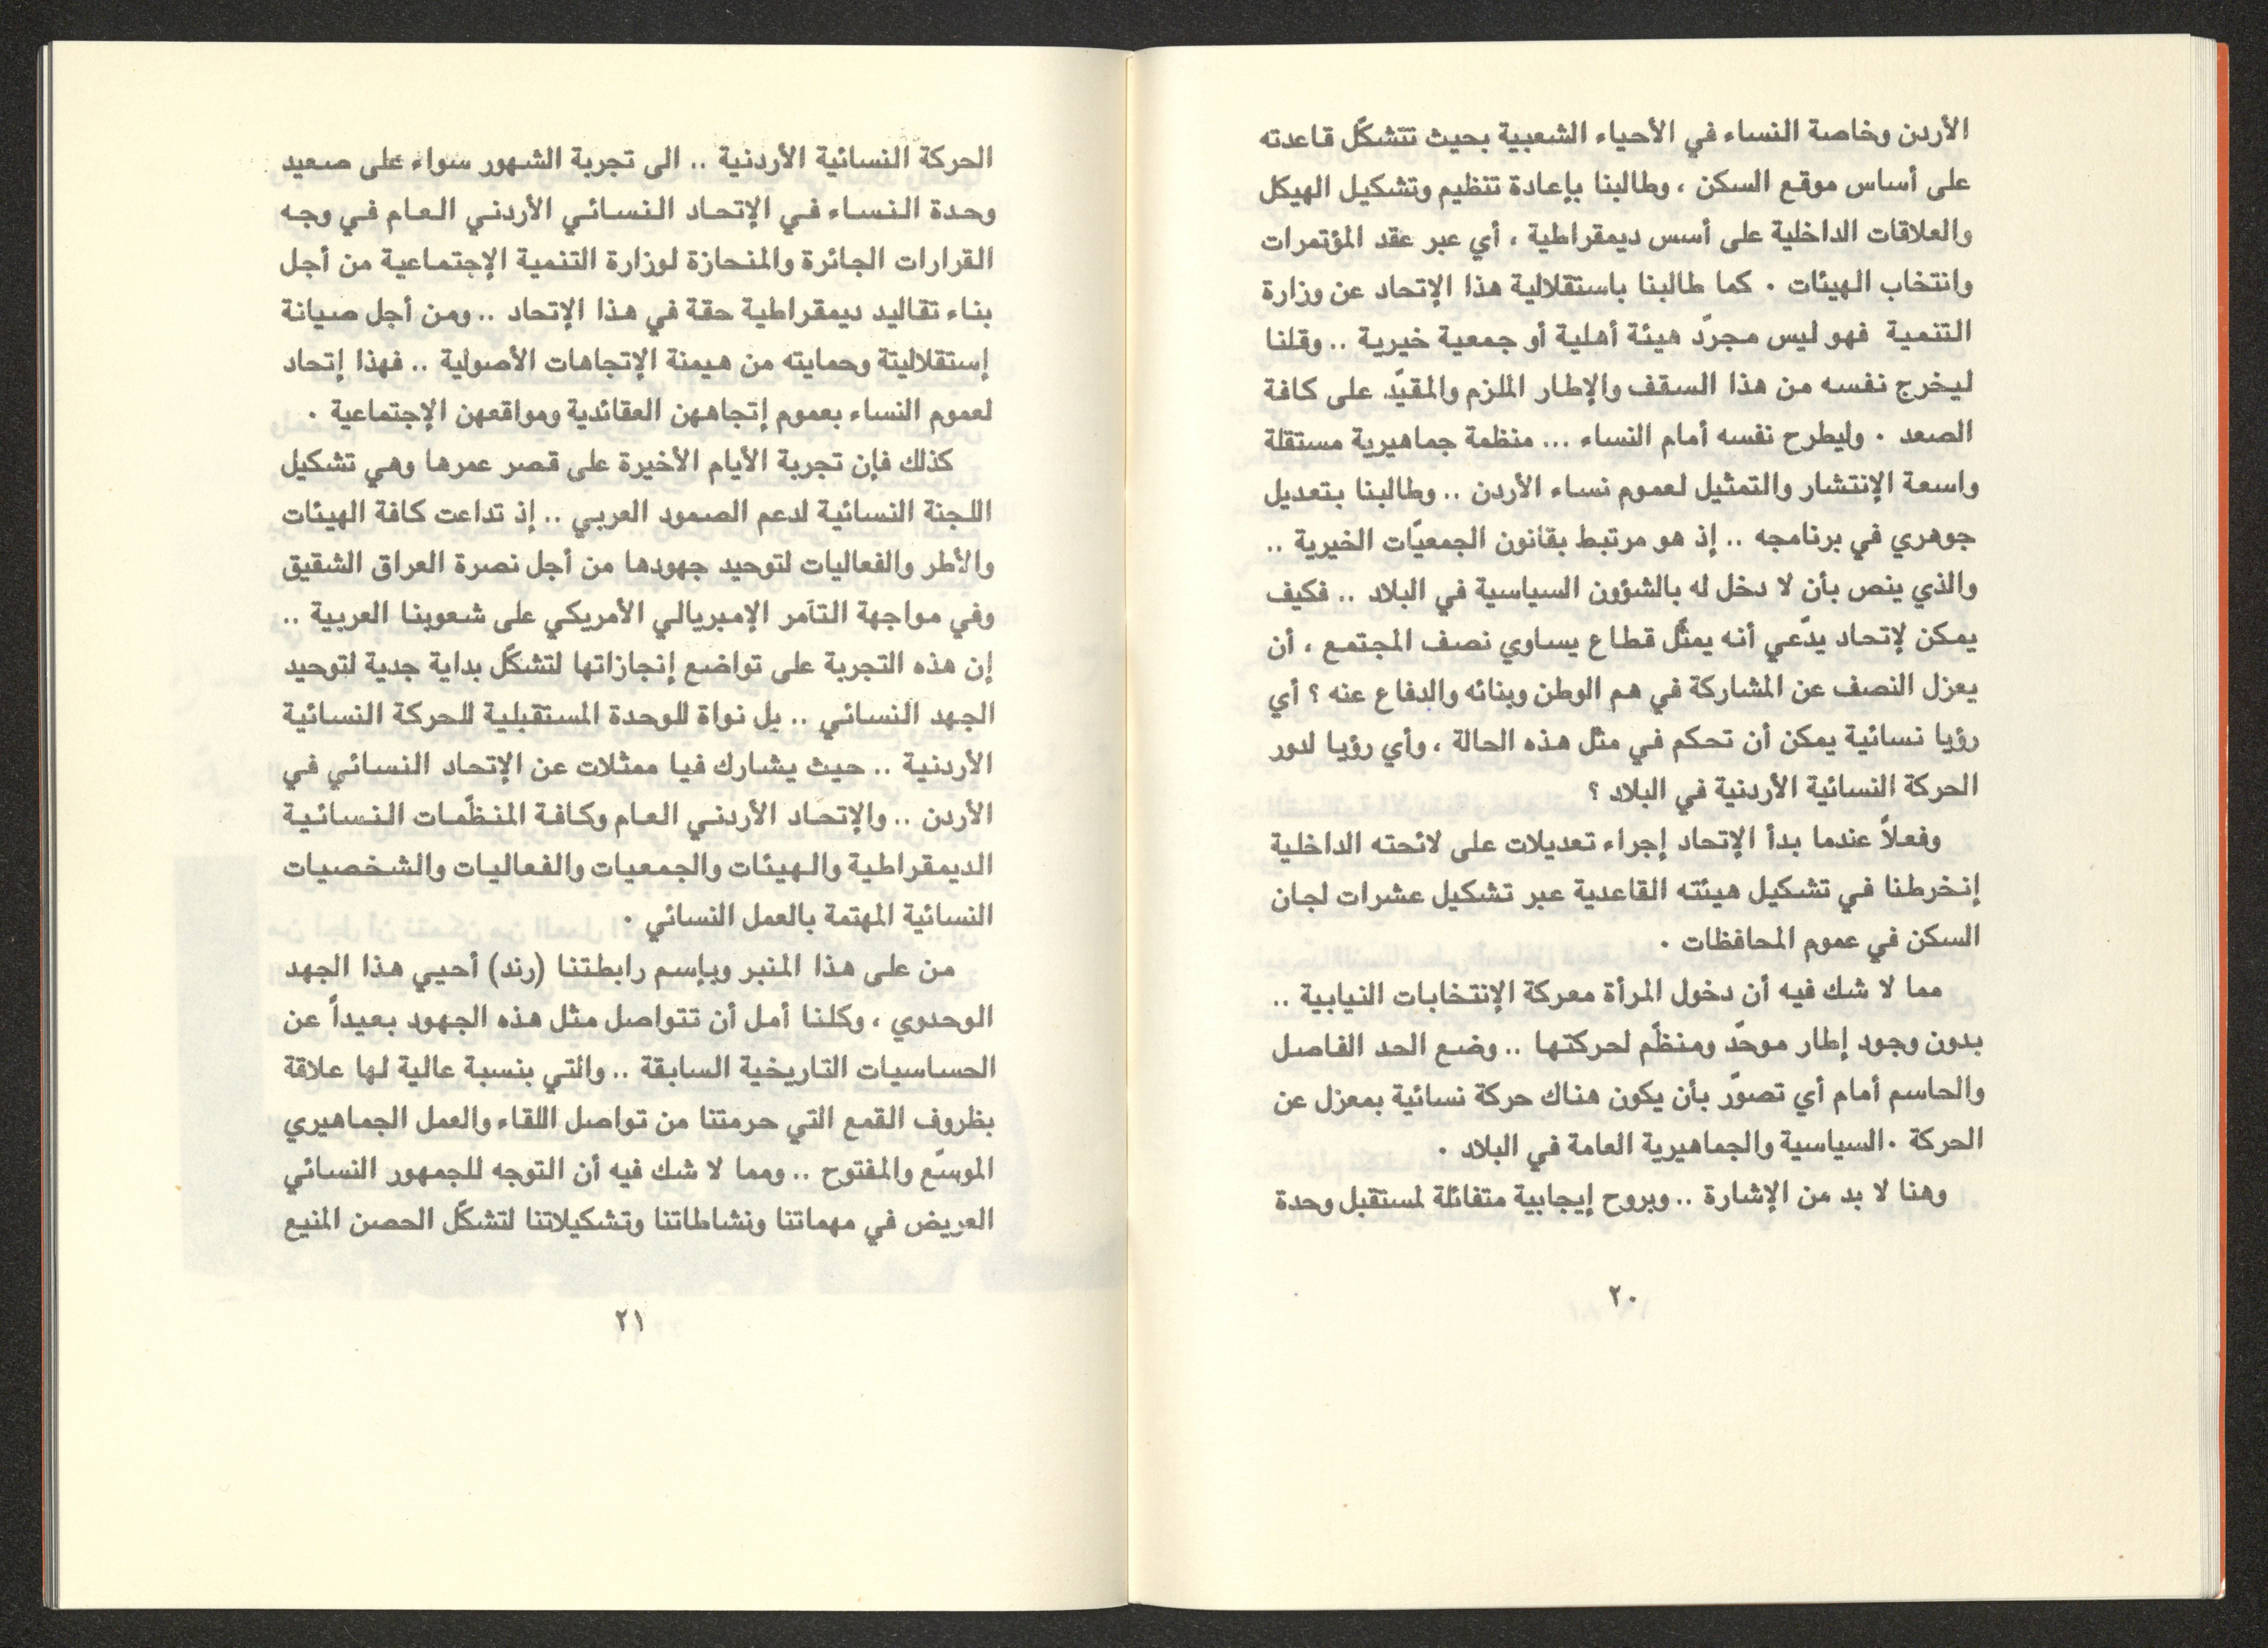 الأردن وخاصة النساء في الأحياء الشعبية بحيث تتشكّل قاعدته
على أساس موقع السكن ، وطالبنا بإعادة تنظيم وتشكيل الهيكل
والعلاقات الداخلية على أسس ديمقراطية ، أي عبر عقد المؤتمرات
وانتخاب الهيئات ٠ كما طالبنا باستقلالية هذا الإتحاد عن وزارة
التنمية فهو ليس مجرّد هيئة أهلية أو جمعية خيرية .. وقلنا
ليخرج نفسه من هذا السقف والإطار الملزم والمقيّد على كافة
الصعد ٠ وليطرح نفسه أمام النساء ... منظمة جماهيرية مستقلة
واسعة الإنتشار والتمثيل لعموم نساء الأردن .. وطالبنا بتعديل
جوهري في برنامجه .. إذ هو مرتبط بقانون الجمعيّات الخيرية ..
والذي ينص بأن لا دخل له بالشؤون السياسية في البلاد .. فكيف
يمكن لإتحاد يدّعي أنه يمثّل قطاع يساوي نصف المجتمع ، أن
يعزل النصف عن المشاركة في هم الوطن وبنائه والدفاع عنه ؟ أي
رؤيا نسائية يمكن أن تحكم في مثل هذه الحالة ، وأي رؤيا لدور
الحركة النسائية الأردنية في البلاد ؟
وفعلاً عندما بدأ الإتحاد إجراء تعديلات على لائحته الداخلية
إنخرطنا في تشكيل هيئته القاعدية عبر تشكيل عشرات لجان
السكن في عموم المحافظات ٠
مما لا شك فيه أن دخول المرأة معركة الإنتخابات النيابية ..
بدون وجود إطار موحّد ومنظّم لحركتها .. وضع الحد الفاصل
والحاسم أمام أي تصوّر بأن يكون هناك حركة نسائية بمعزل عن
الحركة ٠السياسية والجماهيرية العامة في البلاد ٠
وهنا لا بد من الإشارة .. وبروح إيجابية متفائلة لمستقبل وحدة
٢٠
الحركة النسائية الأردنية .. الى تجربة الشهور سواء على صعيد
وحدة النساء في الإتحاد النسائي الأردني العام في وجه
القرارات الجائرة والمنحازة لوزارة التنمية الإجتماعية من أجل
بناء تقاليد ديمقراطية حقة في هذا الإتحاد .. ومن أجل صيانة
إستقلاليتة وحمايته من هيمنة الإتجاهات الأصولية .. فهذا إتحاد
لعموم النساء بعموم إتجاهن العقائدية ومواقعهن الإجتماعية ٠
كذلك فإن تجربة الأيام الأخيرة على قصر عمرها وهي تشكيل
اللجنة النسائية لدعم الصمود العربي .. إذ تداعت كافة الهيئات
والأطر والفعاليات لتوحيد جهودها من أجل نصرة العراق الشقيق
وفي مواجهة التآمر الإمبريالي الأمريكي على شعوبنا العربية ..
إن هذه التجربة على تواضع إنجازاتها لتشكّل بداية جدية لتوحيد
الجهد النسائي .. بل نواة للوحدة المستقبلية للحركة النسائية
الأردنية .. حيث يشارك فيا ممثلات عن الإتحاد النسائي في
الأردن .. والإتحاد الأردني العام وكافة المنظّمات النسائية
الديمقراطية والهيئات والجمعيات والفعاليات والشخصيات
النسائية المهتمة بالعمل النسائي ٠
من على هذا المنبر وبإسم رابطتنا (رند) أحيي هذا الجهد
الوحدوي ، وكلنا أمل أن تتواصل مثل هذه الجهود بعيداً عن
الحساسيات التاريخية السابقة .. والتي بنسبة عالية لها علاقة
بظروف القمع التي حرمتنا من تواصل اللقاء والعمل الجماهيري
الموسّع والمفتوح .. ومما لا شك فيه أن التوجه للجمهور النسائي
العريض في مهماتنا ونشاطاتنا وتشكيلاتنا لتشكّل الحصن المنيع
٢١